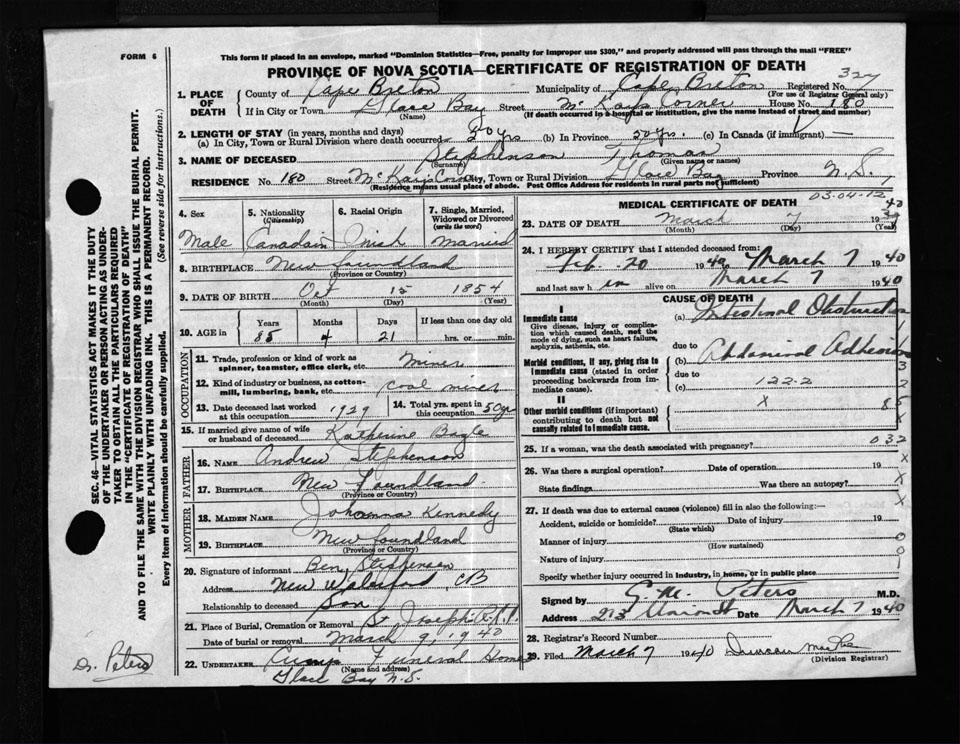 FORM 6
This form if placed in an envelope, marked "Dominion Statistics—Free, penalty for improper use $300," and properly addressed will pass through the mail "FREE"
PROVINCE OF NOVA SCOTIA—CERTIFICATE OF REGISTRATION OF DEATH
327
1. PLACE OF DEATH
County of Cape Breton Municipality of Cape Breton Registered No.
(For use of Registrar General only)
If in City or Town Glace Bay Street McKays Corner House No. 180
(Name) (If death occurred in a hospital or institution, give the name instead of street and number)
2. LENGTH OF STAY (in years, months and days)
(a) In City, Town or Rural Division where death occurred 50 yrs (b) In Province 50 yrs. (c) In Canada (if immigrant) —
3. NAME OF DECEASED Stephenson Thomas
(Surname) (Given name or names)
RESIDENCE No. 180 Street McKays Corner City, Town or Rural Division Glace Bay Province N.S.
(Residence means usual place of abode. Post Office Address for residents in rural parts not sufficient)
4. Sex
Male
5. Nationality (Citizenship)
Canadain
6. Racial Origin
Irish
7. Single, Married, Widowed or Divorced (write the word)
Married
8. BIRTHPLACE New Foundland
(Province or Country)
9. DATE OF BIRTH Oct 15 1854
(Month) (Day) (Year)
10. AGE in Years Months Days If less than one day old
85 4 21 hrs. or min.
OCCUPATION
11. Trade, profession or kind of work as spinner, teamster, office clerk, etc. miner
12. Kind of industry or business, as cotton-mill, lumbering, bank, etc. coal mines
13. Date deceased last worked at this occupation 1929
14. Total yrs. spent in this occupation 50 yrs
15. If married give name of wife or husband of deceased Katherine
FATHER
16. NAME Andrew Stephenson
17. BIRTHPLACE New Foundland
(Province or Country)
MOTHER
18. MAIDEN NAME Johanna Kennedy
19. BIRTHPLACE New Foundland
(Province or Country)
20. Signature of informant Ben Stephenson
Address New Waterford CB
Relationship to deceased Son
21. Place of Burial, Cremation or Removal St Joseph
Date of burial or removal March 9, 1940
22. UNDERTAKER Funeral Home
(Name and address)
Glace Bay N.S.
MEDICAL CERTIFICATE OF DEATH
03-04-12
23. DATE OF DEATH March 7 1940
(Month) (Day) (Year)
24. I HEREBY CERTIFY that I attended deceased from:
Feb. 20 1940 March 7 1940
and last saw h im alive on March 7 1940
CAUSE OF DEATH
I
Immediate cause
Give disease, injury or complication which caused death, not the mode of dying, such as heart failure, asphyxia, asthenia, etc.
(a) Intestinal Obstruction
due to
Morbid conditions, if any, giving rise to immediate cause (stated in order proceeding backwards from immediate cause).
(b) Abdominal Adhesions
due to
(c) 122-2
II
Other morbid conditions (if important) contributing to death but not causally related to immediate cause.
x
85
25. If a woman, was the death associated with pregnancy?
032
26. Was there a surgical operation? Date of operation 19
State findings Was there an autopsy?
27. If death was due to external causes (violence) fill in also the following:—
Accident, suicide or homicide? Date of injury 19
(State which)
Manner of injury
(How sustained)
Nature of injury
Specify whether injury occurred in industry, in home, or in public place
Signed by E. M. Peters M.D.
Address 213 Date March 7 1940
28. Registrar's Record Number
29. Filed March 7 1940 Duncan
(Division Registrar)
SEC. 46—VITAL STATISTICS ACT MAKES IT THE DUTY OF THE UNDERTAKER OR PERSON ACTING AS UNDERTAKER TO OBTAIN ALL THE PARTICULARS REQUIRED IN THE "CERTIFICATE OF REGISTRATION OF DEATH" AND TO FILE THE SAME WITH THE DIVISION REGISTRAR WHO SHALL ISSUE THE BURIAL PERMIT.
WRITE PLAINLY WITH UNFADING INK. THIS IS A PERMANENT RECORD.
Every item of information should be carefully supplied. (See reverse side for instructions.)
Dr. Peters